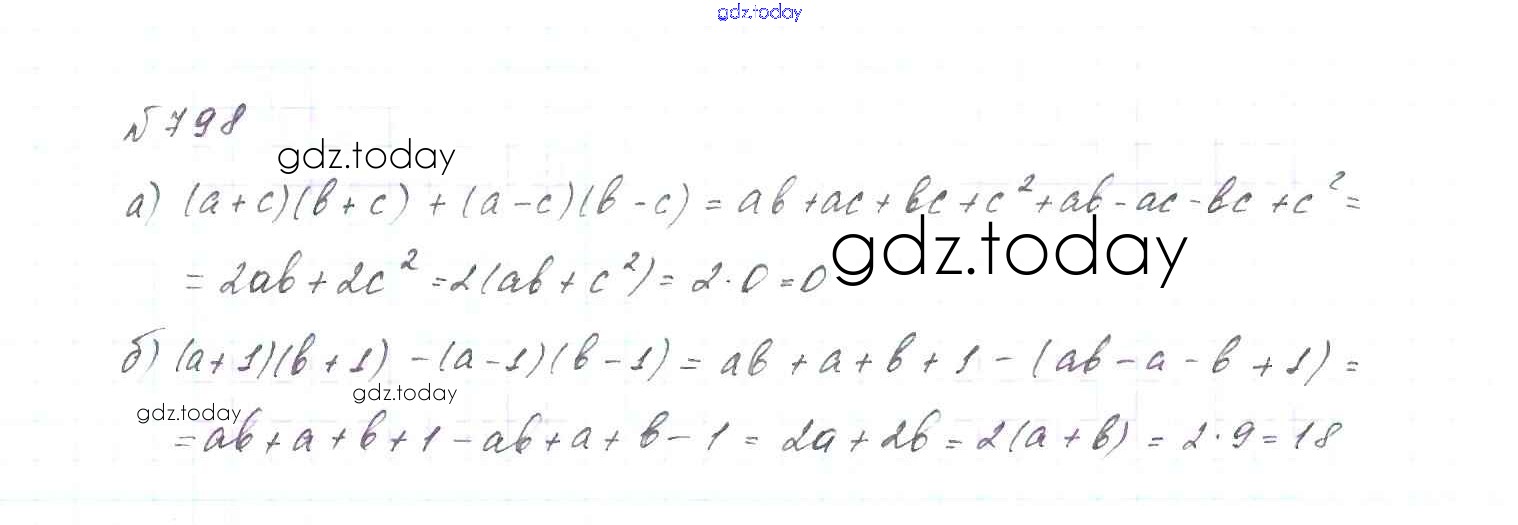 gdz.today
№798
gdz.today
а) (a+c)(b+c) + (a-c)(b-c) = ab+ac+bc+c²+ab-ac-bc+c² =
= 2ab+2c² = 2(ab+c²) = 2·0 = 0
gdz.today
б) (a+1)(b+1) - (a-1)(b-1) = ab+a+b+1-(ab-a-b+1) =
gdz.today
gdz.today
= ab+a+b+1-ab+a+b-1 = 2a+2b = 2(a+b) = 2·9 = 18